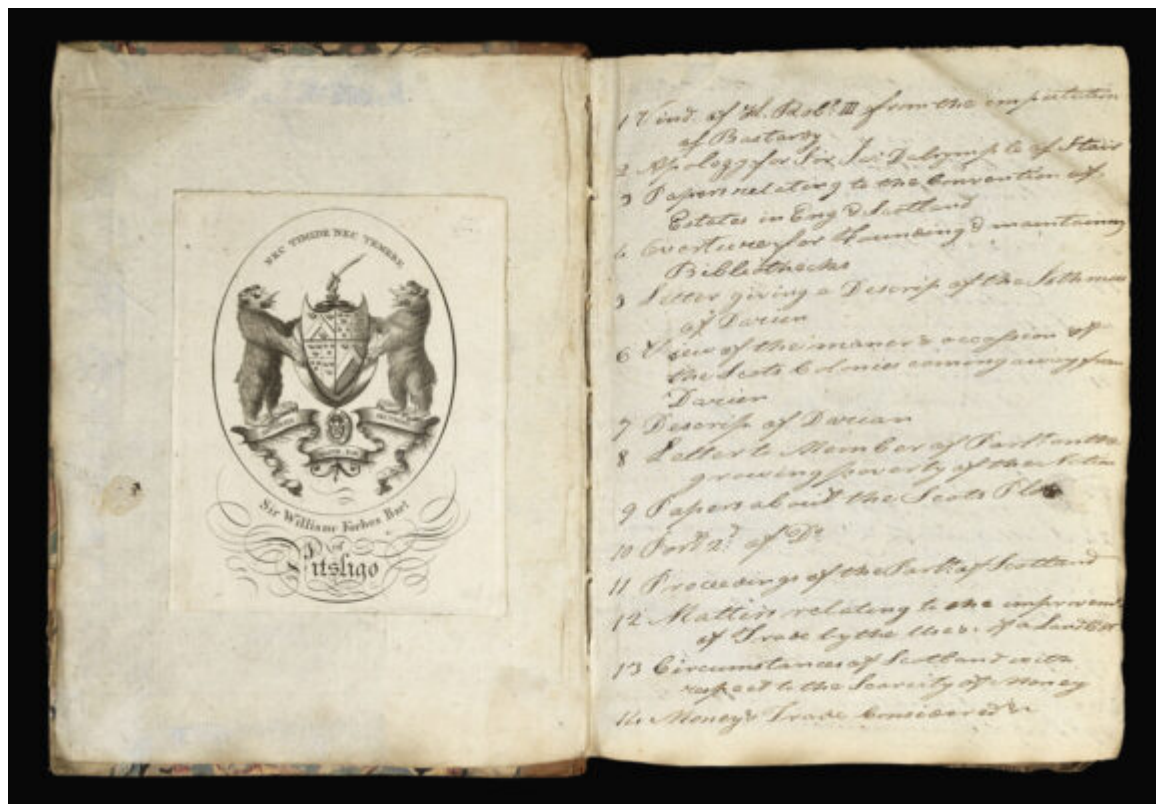 NEC TIMIDE NEC TEMERE
Sir William Forbes Bart
of
Pitsligo
1 Vind. of K. Robt. III from the imputation
of Bastardy
2 Apology for Sir Ja: Dalrymple of Stair
3 Papers relating to the Convention of
Estates in Eng & Scotland
4 Overture for Founding & maintaining
Bibliothecks
5 Letter giving a Descrip of the Isthmus
of Darien
6 View of the maner & occassion of
the Scots Colonies coming away from
Darien
7 Descrip of Darian
8 Letter to Member of Parlt. on the
growing poverty of the Nation
9 Papers about the Scots Plot
10 Part 2d. of Do.
11 Proceedings of the Parlt. of Scotland
12 Matters relating to the improvemt.
of Trade by the
13 Circumstances of Scotland with
respect to the Scarcity of Money
14 Money & Trade Considered &c